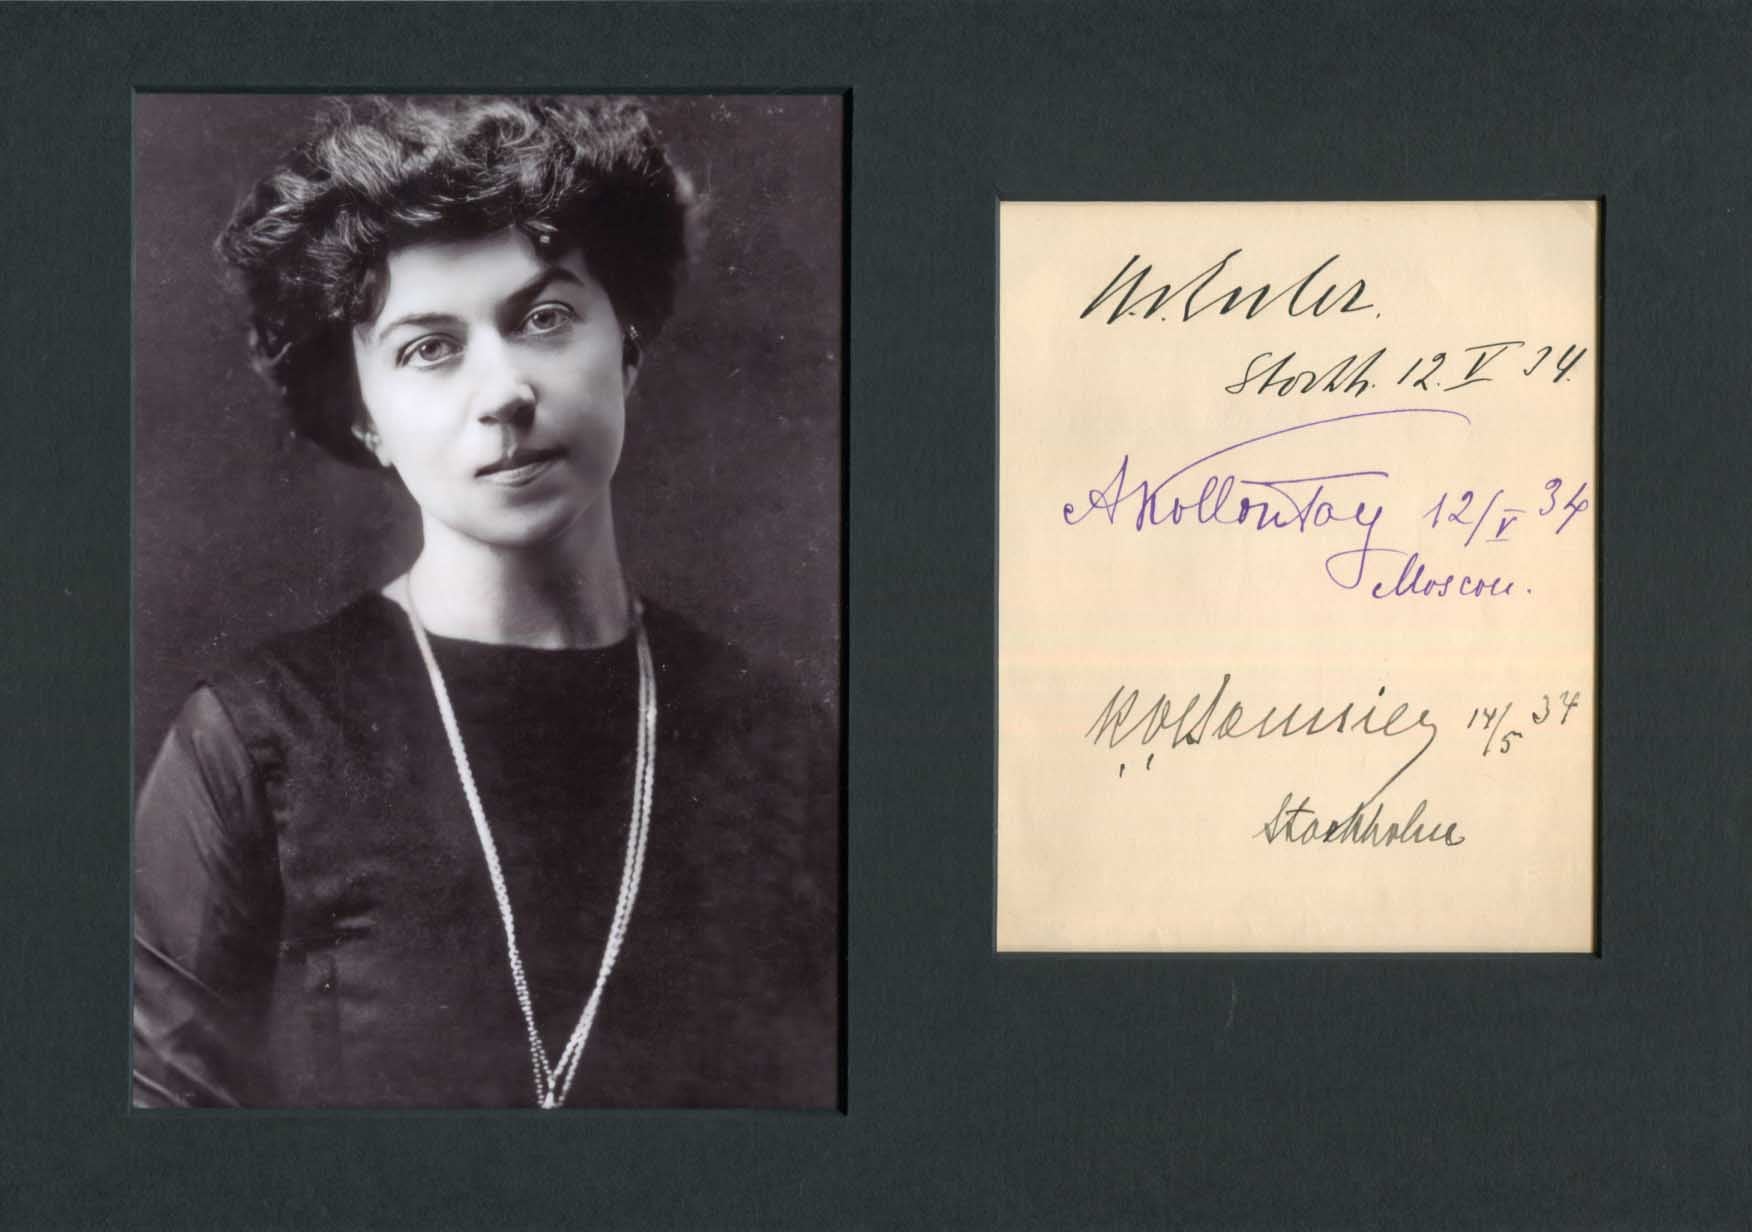 H. v. Euler.
Stockh. 12. V 34.
AKollontay 12/V 34
Moscou.
14/5 34
Stockholm